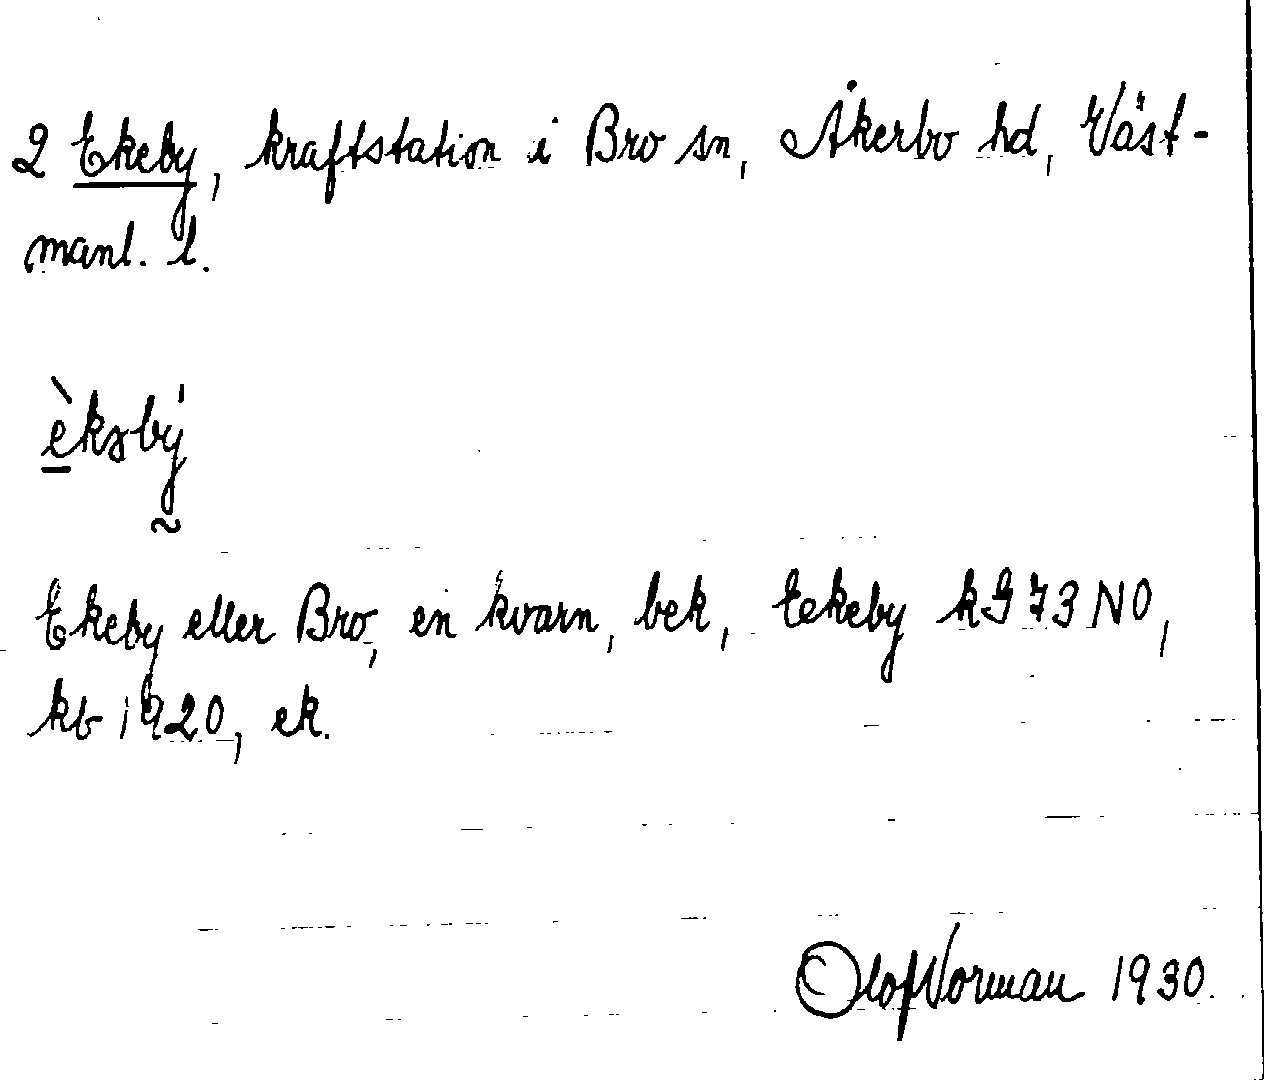 2 Ekeby, kraftstation i Bro sn, Åkerbo hd, Väst-
manl. l.
Ekeby eller Bro, en kvarn, bek, Eekeby kG 73 NO,
kb 1920, ek.
Olof Vorman 1930.